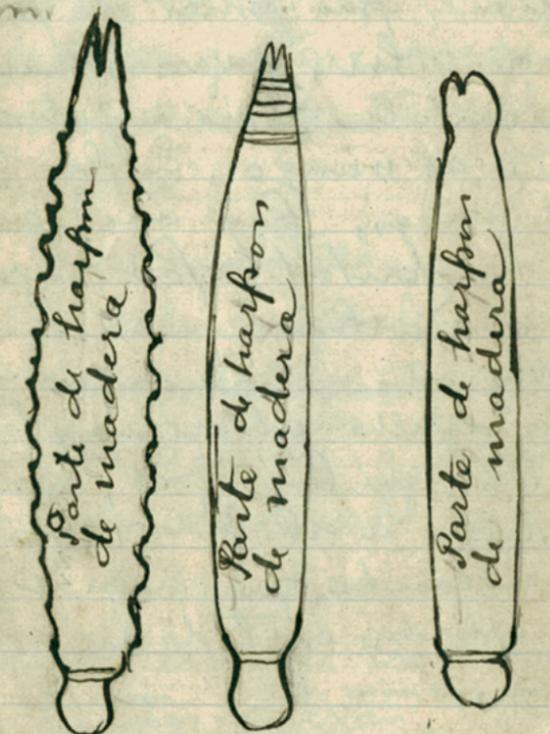 Parte de harpon
de madera
Parte de harpon
de madera
Parte de harpon
de madera